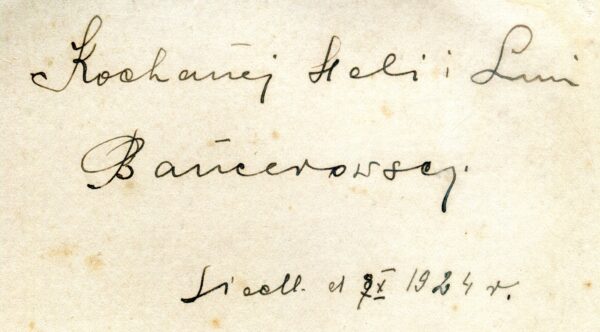 Kochanej Heli i Luni
Bańcerowscy.
Siedl. d X 1924 r.